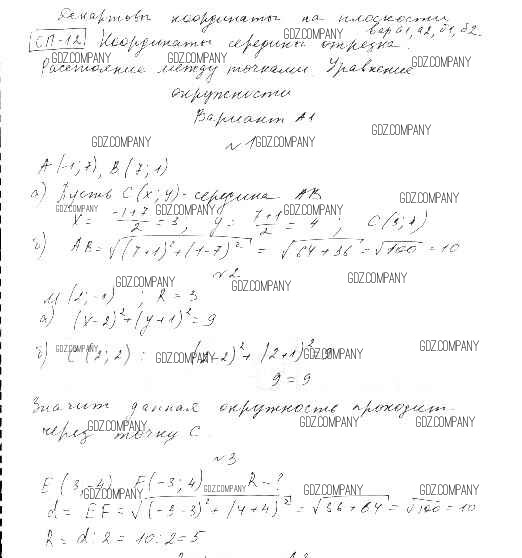 Декартовы координаты на плоскости
вар а1, а2, б1, б2.
СП-12 Координаты середины отрезка.
Расстояние между точками. Уравнение
окружности
Вариант А1
№1
A(-1; 7), B(7; 1)
а) Пусть C(x; y) - середина AB
x = (-1+7)/2 = 3, y = (7+1)/2 = 4; C(3; 4)
б) AB = √((7+1)² + (1-7)²) = √(64+36) = √100 = 10
№2
M(2; -1); R = 3
а) (x-2)² + (y+1)² = 9
б) C(2; 2): (2-2)² + (2+1)² = 9
9 = 9
Значит данная окружность проходит
через точку C.
№3
E(3; -4) F(-3; 4) R - ?
d = EF = √((-3-3)² + (4+4)²) = √(36+64) = √100 = 10
R = d : 2 = 10 : 2 = 5
GDZ.COMPANY